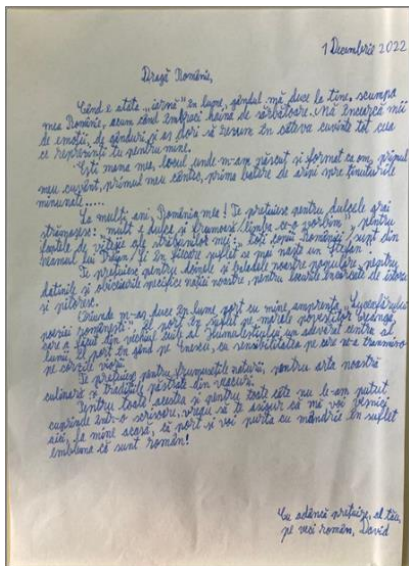 1 Decembrie 2022
Dragă Românie,
Când e atâta „iarnă” în lume, gândul mă duce la tine, scumpa
mea Românie, acum când îmbraci haina de sărbătoare. Mă încearcă mii
de emoții, de gânduri și aș dori să rezum în câteva cuvinte tot ceea
ce reprezinți tu pentru mine.
Ești mama mea, locul unde m-am născut și format ca om, primul
meu cuvânt, primul meu cântec, prima bătaie de aripi spre ținuturile
minunate.....
La mulți ani, România mea! Te prețuiesc pentru dulcele grai
strămoșesc: „mult e dulce și frumoasă limba ce-o vorbim”, pentru
faptele de vitejie ale străbunilor mei: „Toți copiii României sunt din
neamul lui Traian Și în fiecare suflet se mai naște un Ștefan”
Te prețuiesc pentru doinele și baladele noastre populare, pentru
datinile și obiceiurile specifice nației noastre, pentru locurile încărcate de istorie
și pitoresc.
Oriunde m-aș duce în lume, port cu mine amprenta „Luceafărului
poeziei românești”, îl port în suflet pe marele povestitor Creangă
care a făcut din vechiul Iești al Humuleștiului un adevărat centru al
lumii, îl port în gând pe Enescu, cu sensibilitatea pe care ne-a transmis-o
pe corzile viorii.
Te prețuiesc pentru frumusețile naturii, pentru arta noastră
culinară și tradițiile păstrate din veacuri.
Pentru toate acestea și pentru toate câte nu le-am putut
cuprinde într-o scrisoare, vreau să te asigur că mă voi
aici, la mine acasă, că port și voi purta cu mândrie în suflet
emblema că sunt român!
Cu adâncă prețuire, al tău,
pe veci român, David